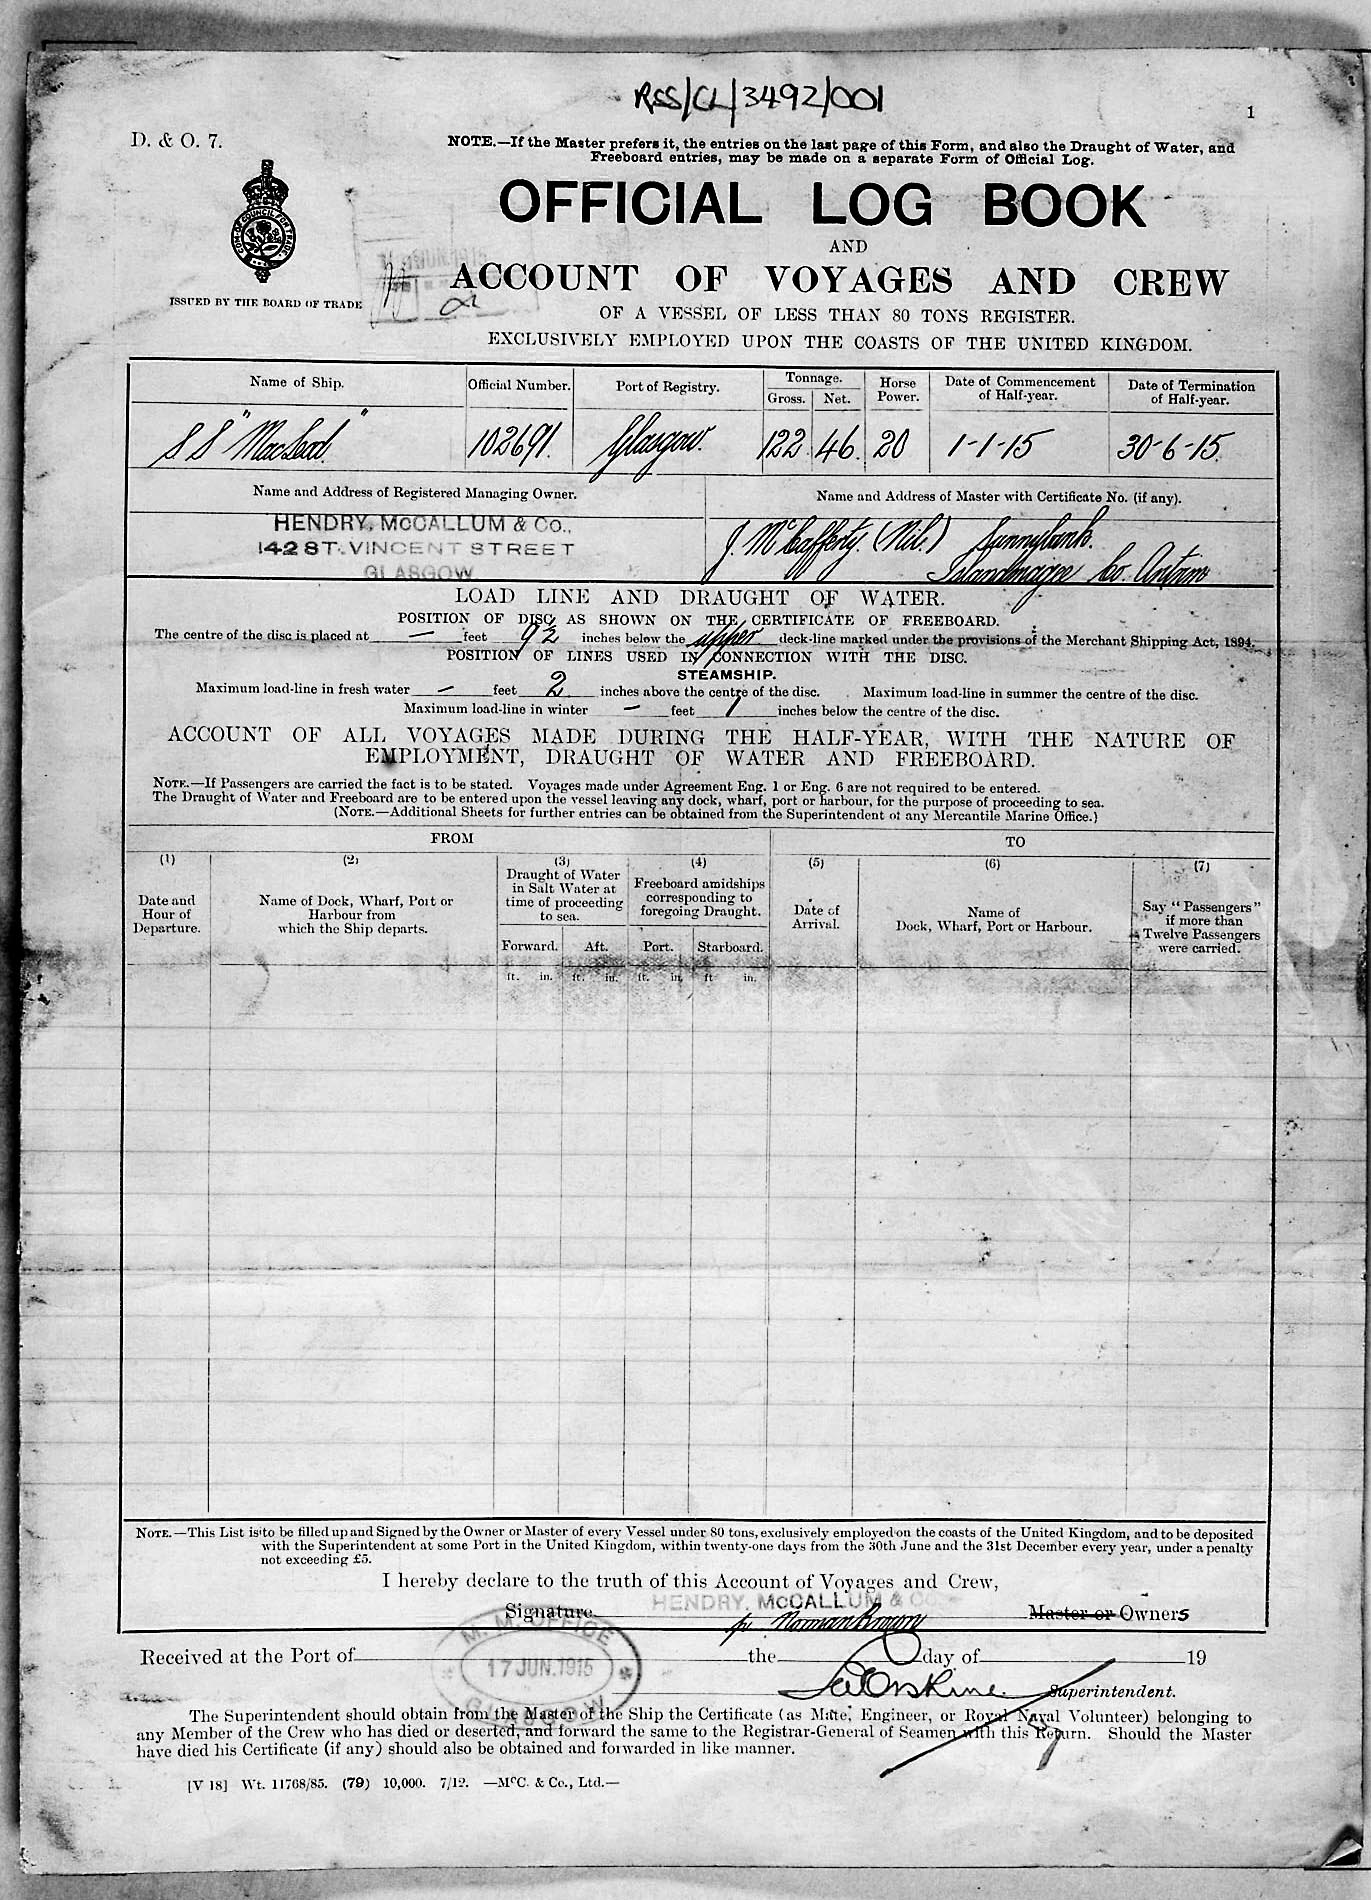 RSS/CL/3492/001
1
D. & O. 7.
NOTE.—If the Master prefers it, the entries on the last page of this Form, and also the Draught of Water, and
Freeboard entries, may be made on a separate Form of Official Log.
OFFICIAL LOG BOOK
AND
ACCOUNT OF VOYAGES AND CREW
ISSUED BY THE BOARD OF TRADE
OF A VESSEL OF LESS THAN 80 TONS REGISTER.
EXCLUSIVELY EMPLOYED UPON THE COASTS OF THE UNITED KINGDOM.
Name of Ship. Official Number. Port of Registry. Tonnage. Gross. Net. Horse Power. Date of Commencement of Half-year. Date of Termination of Half-year.
S S "MacLeod" 102691. Glasgow. 122 46. 20 1-1-15 30-6-15.
Name and Address of Registered Managing Owner. Name and Address of Master with Certificate No. (if any).
HENDRY, McCALLUM & Co.,
142 ST. VINCENT STREET
GLASGOW
J. McCafferty. (Nil.) Sunnybank.
Islandmagee Co. Antrim
LOAD LINE AND DRAUGHT OF WATER.
POSITION OF DISC AS SHOWN ON THE CERTIFICATE OF FREEBOARD.
The centre of the disc is placed at — feet 9½ inches below the upper deck-line marked under the provisions of the Merchant Shipping Act, 1894.
POSITION OF LINES USED IN CONNECTION WITH THE DISC.
STEAMSHIP.
Maximum load-line in fresh water — feet 2 inches above the centre of the disc. Maximum load-line in summer the centre of the disc.
Maximum load-line in winter — feet 1 inches below the centre of the disc.
ACCOUNT OF ALL VOYAGES MADE DURING THE HALF-YEAR, WITH THE NATURE OF
EMPLOYMENT, DRAUGHT OF WATER AND FREEBOARD.
NOTE.—If Passengers are carried the fact is to be stated. Voyages made under Agreement Eng. 1 or Eng. 6 are not required to be entered.
The Draught of Water and Freeboard are to be entered upon the vessel leaving any dock, wharf, port or harbour, for the purpose of proceeding to sea.
(NOTE.—Additional Sheets for further entries can be obtained from the Superintendent of any Mercantile Marine Office.)
FROM TO
(1) (2) (3) (4) (5) (6) (7)
Date and Hour of Departure.
Name of Dock, Wharf, Port or Harbour from which the Ship departs.
Draught of Water in Salt Water at time of proceeding to sea.
Freeboard amidships corresponding to foregoing Draught.
Date of Arrival.
Name of Dock, Wharf, Port or Harbour.
Say "Passengers" if more than Twelve Passengers were carried.
Forward. Aft. Port. Starboard.
ft. in. ft. in. ft. in. ft in.
NOTE.—This List is to be filled up and Signed by the Owner or Master of every Vessel under 80 tons, exclusively employed on the coasts of the United Kingdom, and to be deposited
with the Superintendent at some Port in the United Kingdom, within twenty-one days from the 30th June and the 31st December every year, under a penalty
not exceeding £5.
I hereby declare to the truth of this Account of Voyages and Crew,
HENDRY, McCALLUM & Co.
Signature p. Norman Brown Master or Owners
M. M. OFFICE
17 JUN. 1915
GLASGOW
Received at the Port of the day of 19
Erskine Superintendent.
The Superintendent should obtain from the Master of the Ship the Certificate (as Mate, Engineer, or Royal Naval Volunteer) belonging to
any Member of the Crew who has died or deserted, and forward the same to the Registrar-General of Seamen with this Return. Should the Master
have died his Certificate (if any) should also be obtained and forwarded in like manner.
[V 18] Wt. 11768/85. (79) 10,000. 7/12. —McC. & Co., Ltd.—